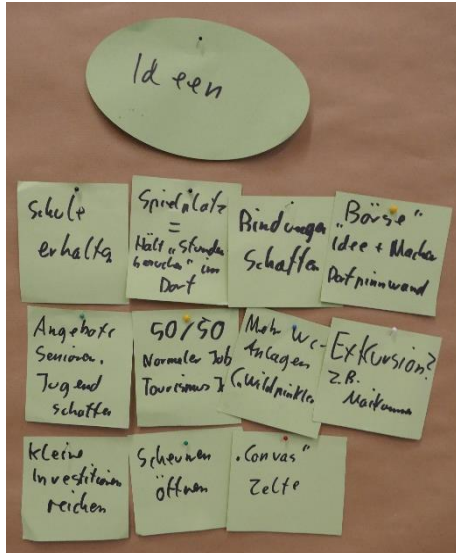 Ideen
Schule
erhalten
Spielplatz
=
Hält "Stunden
besucher" im
Dorf
Bindungen
Schaffen
"Börse"
"Idee + Macher
Dorfpinnwand
Angebote
Senioren,
Jugend
schaffen
50/50
Normaler Job
Tourismus J
Mehr WC-
Anlagen
(Wildpinkler
Exkursion?
z.B.
kleine
Investitionen
reichen
Scheunen
öffnen
"Convas"
Zelte